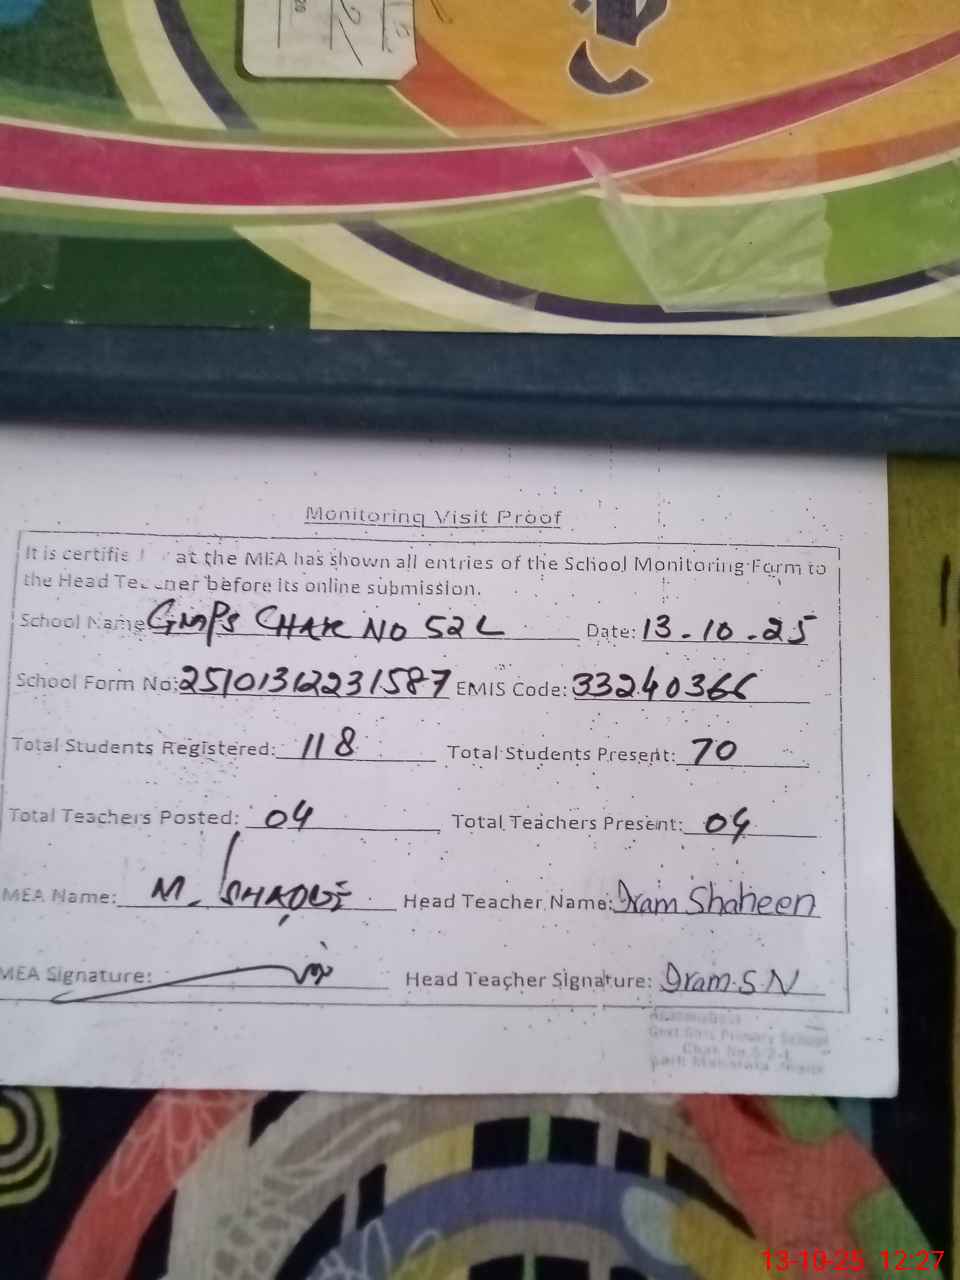 Monitoring Visit Proof
It is certifie at the MEA has shown all entries of the School Monitoring Form to
the Head Teacher before its online submission.
School Name GMPS CHAK NO 52 L Date: 13-10-25
School Form No: 2510131223 1587 EMIS Code: 33240366
Total Students Registered: 118 Total Students Present: 70
Total Teachers Posted: 04 Total Teachers Present: 04
MEA Name: M. Head Teacher Name: Iram Shaheen
MEA Signature: Head Teacher Signature: Iram.S.N
Govt Girls Primary School
13-10-25 12:27